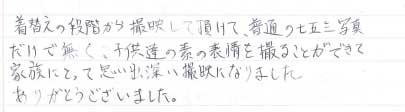 着替えの段階から撮映して頂けて、普通の七五三写真
だけで無く、子供達の素の表情を撮ることができて
家族にとって思い出深い撮映になりました
ありがとうございました。